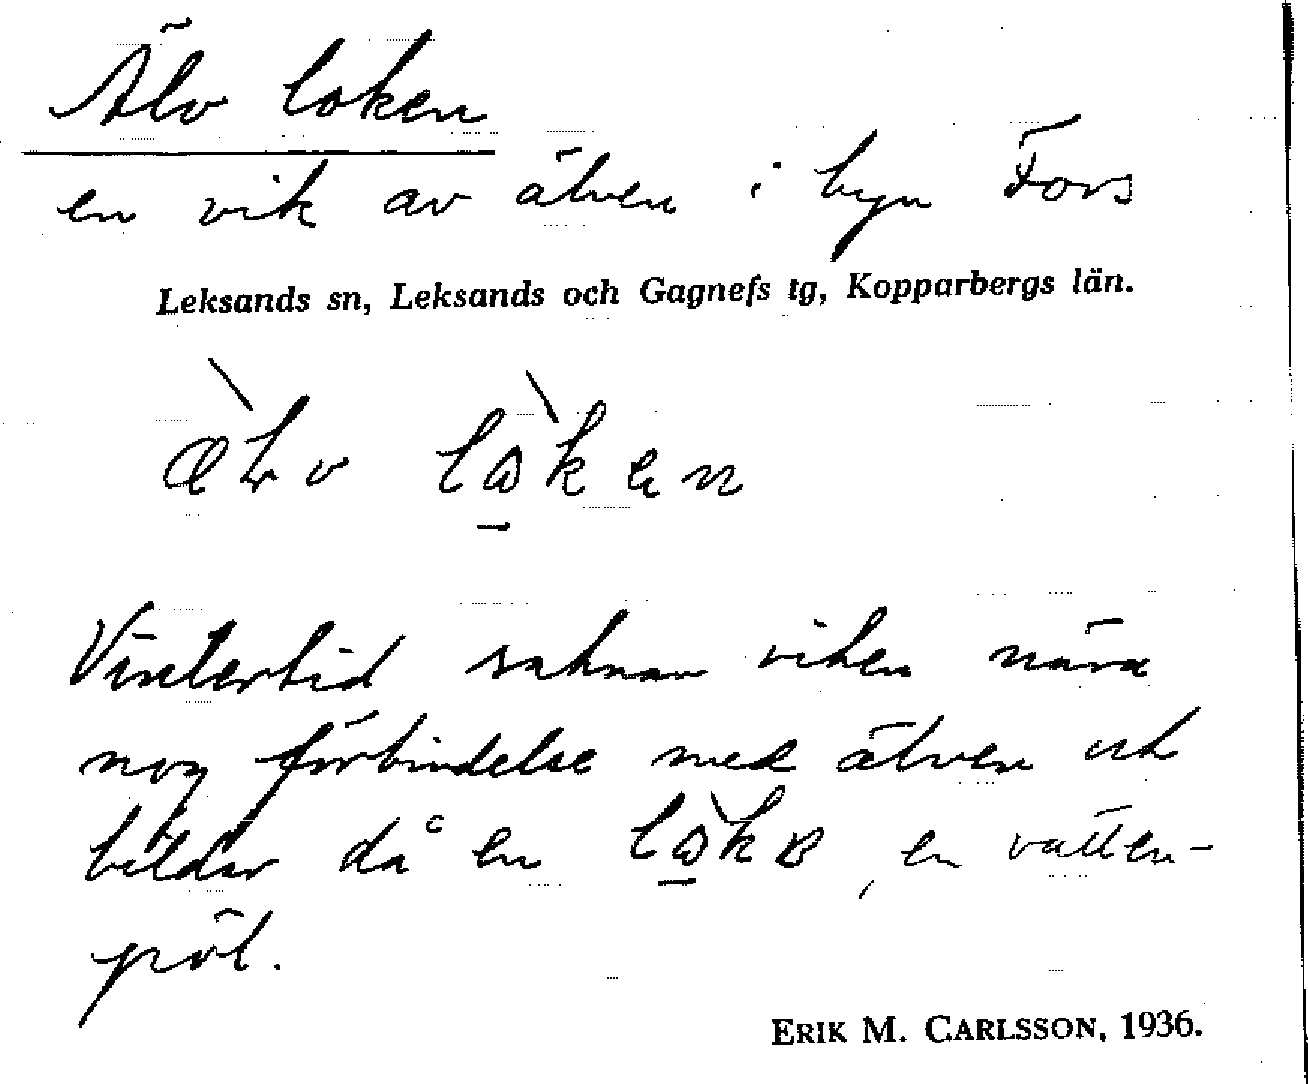 Älv loken
en vik av älven i byn Fors
Leksands sn, Leksands och Gagnefs tg, Kopparbergs län.
Vintertid saknar viken nära
nog förbindelse med älven och
bildar då en , en vatten-
pöl.
ERIK M. CARLSSON, 1936.